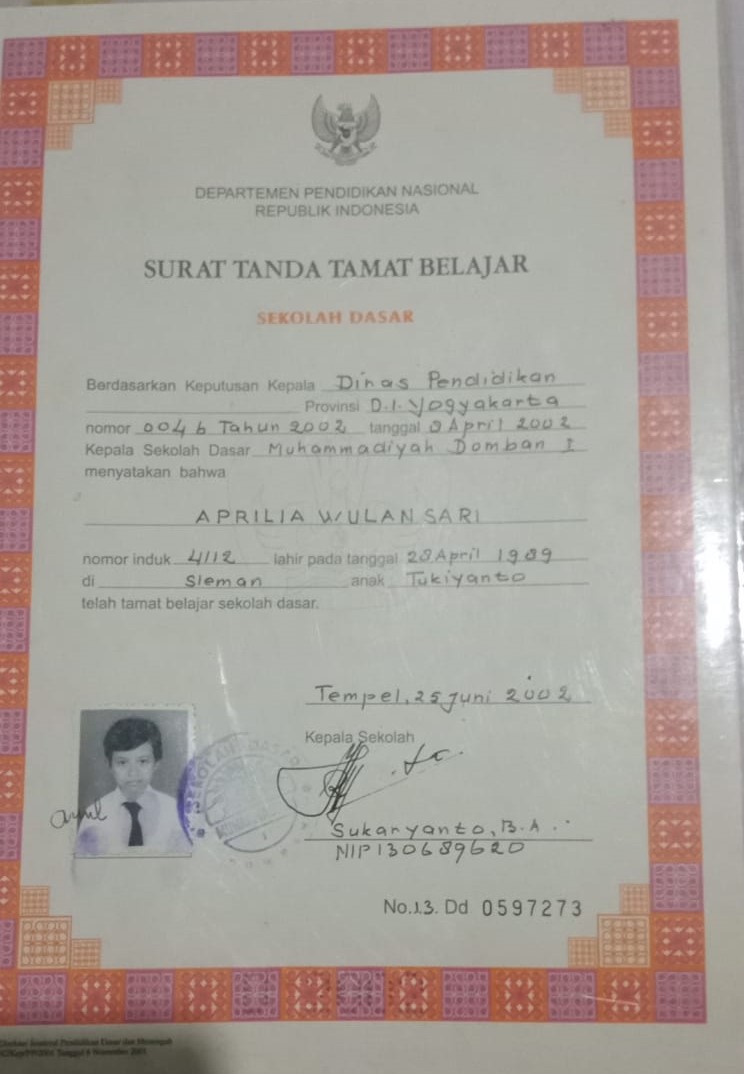 DEPARTEMEN PENDIDIKAN NASIONAL
REPUBLIK INDONESIA
SURAT TANDA TAMAT BELAJAR
SEKOLAH DASAR
Berdasarkan Keputusan Kepala Dinas Pendidikan
Provinsi D.I. Yogyakarta
nomor 004 b Tahun 2002 tanggal 8 April 2002
Kepala Sekolah Dasar Muhammadiyah Domban I
menyatakan bahwa
APRILIA WULAN SARI
nomor induk 4112 lahir pada tanggal 28 April 1989
di Sleman anak Tukiyanto
telah tamat belajar sekolah dasar.
Tempel, 25 Juni 2002
Kepala Sekolah
SEKOLAH DASAR
Sukaryanto, B.A.
NIP 130689620
No.13. Dd 0597273